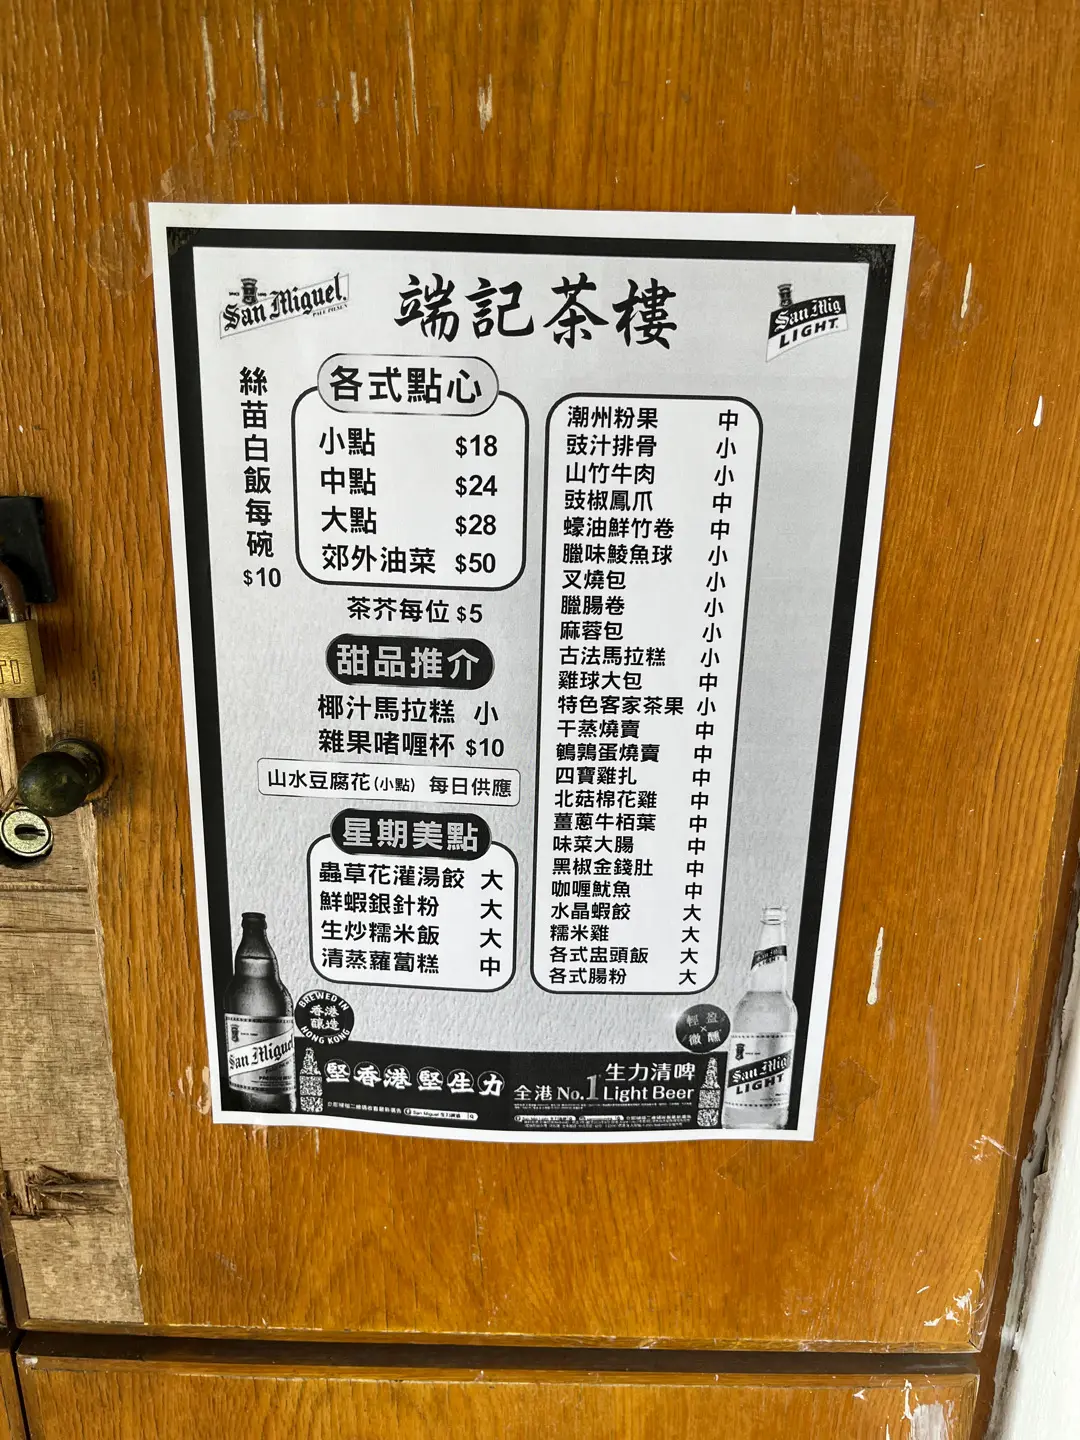 San Miguel
PALE PILSEN
端記茶樓
San Mig
LIGHT
絲苗白飯每碗
$10
各式點心
小點 $18
中點 $24
大點 $28
郊外油菜 $50
茶芥每位 $5
甜品推介
椰汁馬拉糕 小
雜果啫喱杯 $10
山水豆腐花(小點) 每日供應
星期美點
蟲草花灌湯餃 大
鮮蝦銀針粉 大
生炒糯米飯 大
清蒸蘿蔔糕 中
潮州粉果 中
豉汁排骨 小
山竹牛肉 小
豉椒鳳爪 中
蠔油鮮竹卷 中
臘味鯪魚球 小
叉燒包 小
臘腸卷 小
麻蓉包 小
古法馬拉糕 小
雞球大包 中
特色客家茶果 小
干蒸燒賣 中
鵪鶉蛋燒賣 中
四寶雞扎 中
北菇棉花雞 中
薑蔥牛栢葉 中
味菜大腸 中
黑椒金錢肚 中
咖喱魷魚 中
水晶蝦餃 大
糯米雞 大
各式盅頭飯 大
各式腸粉 大
BREWED IN
香港
釀造
HONG KONG
San Miguel
堅香港堅生力
San Miguel 生力啤酒
輕盈
×
微醺
全港No.1
生力清啤
Light Beer
San Mig
LIGHT